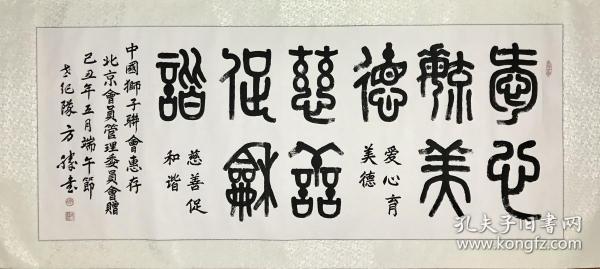 愛心
毓美
德
爱心育
美德
慈善
促龢
諧
慈善促
和谐
中國獅子聯會惠存
北京會員管理委員會贈
己丑年五月端午節
方勝書
孔夫子旧书网
www.kongfz.com